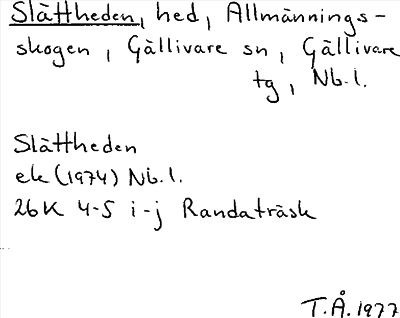 Slättheden, hed, Allmännings-
skogen, Gällivare sn, Gällivare
tg, Nb.l.
Slättheden
ek (1974) Nb.l.
26K 4-5 i-j Randaträsk
T.Å. 1977